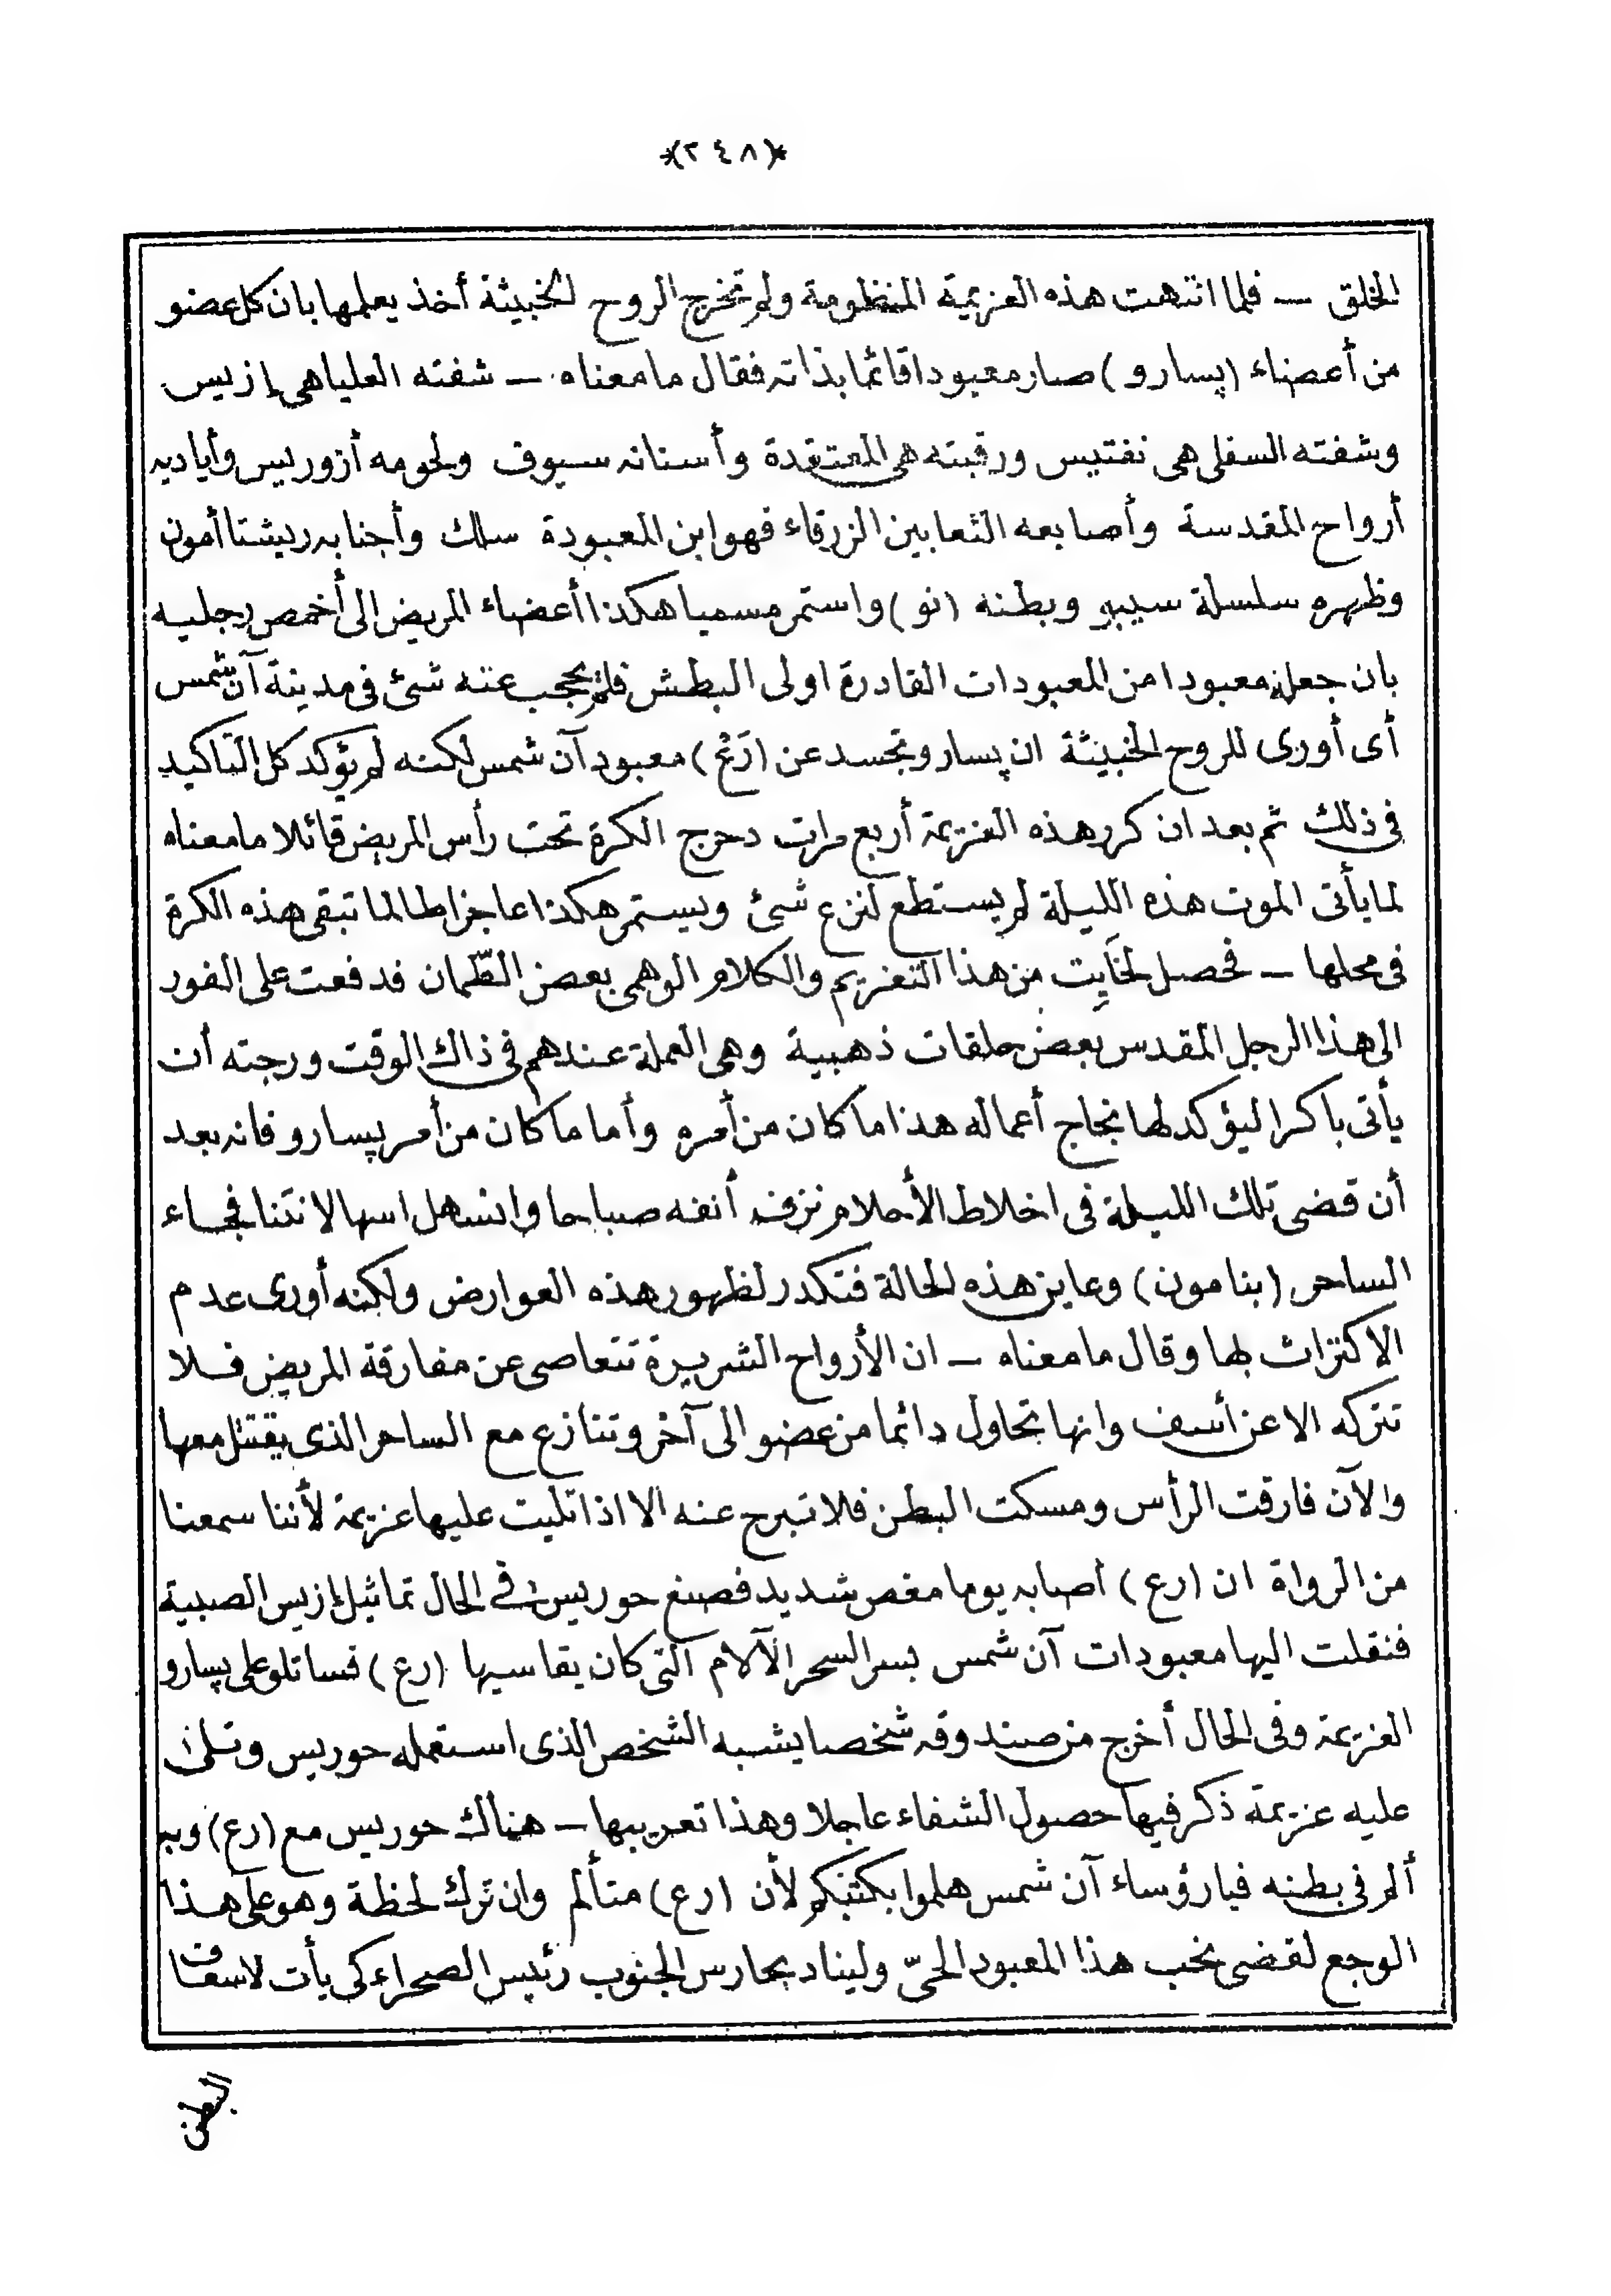 *(٢٤٨)*
الخلق — فلما انتهت هذه العزيمة المنظومة ولم تخرج الروح الخبيثة أخذ يعلمها بان كل عضو
من أعضاء (پسارو) صار معبودا قائما بذاته فقال ما معناه — شفته العليا هى إزيس
وشفته السفلى هى نفتيس ورقبته هى المعتقدة وأسنانه سيوف ولحومه أزوريس وأياديه
أرواح المقدسة وأصابعه الثعابين الزرقاء فهو ابن المعبودة سلك وأجنابه ريشتا أمون
وظهره سلسلة سيبو وبطنه (نو) واستمر مسميا هكذا أعضاء المريض الى أخمص رجليه
بان جعله معبودا من المعبودات القادرة اولى البطش فلم يحجب عنه شئ فى مدينة آن شمس
أى أورى للروح الخبيثة ان پسارو تجسد عن (رَعْ) معبود آن شمس لكنه لم يؤكد كل التأكيد
فى ذلك ثم بعد ان كرر هذه العزيمة أربع مرات دحرج الكرة تحت رأس المريض قائلا ما معناه
لما يأتى الموت هذه الليلة لم يستطع لنزع شئ ويستمر هكذا عاجزا طالما تبقى هذه الكرة
فى محلها — فحصل لخَاپِت من هذا التعزيم والكلام الوهمى بعض الطّمان فدفعت على الفور
الى هذا الرجل المقدس بعض حلقات ذهبية وهى العملة عندهم فى ذاك الوقت ورجته أن
يأتى باكرا ليؤكد لها نجاح أعماله هذا ما كان من أمره وأما ما كان من أمر پسارو فانه بعد
أن قضى تلك الليلة فى اخلاط الأحلام نزف أنفه صباحا وانسهل اسهالا نتنا فجاء
الساحر (بنامون) وعاين هذه الحالة فتكدر لظهور هذه العوارض ولكنه أورى عدم
الاكتراث بها وقال ما معناه — ان الأرواح الشريرة تتعاصى عن مفارقة المريض فلا
تتركه الا عن أسف وانها تحاول دائما من عضو الى آخر وتنازع مع الساحر الذى يقتتل معها
والآن فارقت الرأس ومسكت البطن فلا تبرح عنه الا اذا تليت عليها عزيمة لأننا سمعنا
من الرواة ان (رع) أصابه يوما مغص شديد فصنع حوريس فى الحال تماثيل إزيس الصبية
فنقلت اليها معبودات آن شمس بسر السحر الآلام التى كان يقاسيها (رع) فسأتلو على پسارو
العزيمة وفى الحال أخرج من صندوقه شخصا يشبه الشخص الذى استعمله حوريس وتلى
عليه عزيمة ذكر فيها حصول الشفاء عاجلا وهذا تعريبها — هناك حوريس مع (رع) وبه
ألم فى بطنه فيا رؤساء آن شمس هلموا بكتبكم لأن (رع) متألم وان ترك لحظة وهو على هذا
الوجع لقضى نحب هذا المعبود الحىّ ولينادِ بحارس الجنوب رئيس الصحراء كى يأت لاسعاف
البطن